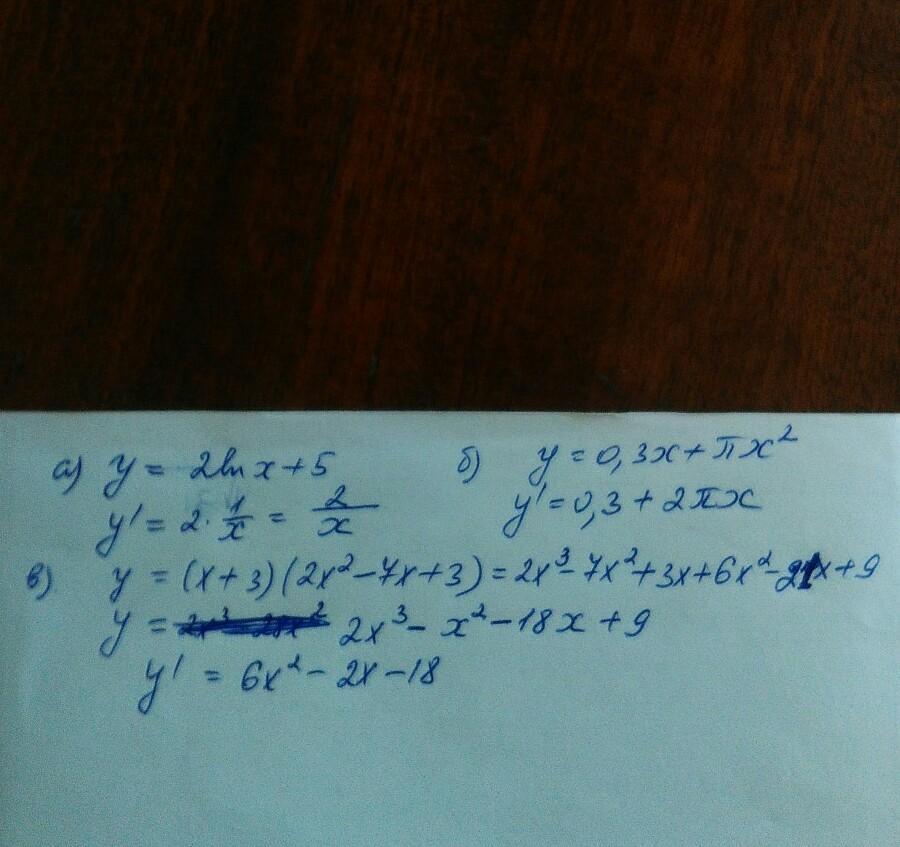 а) y = 2ln x + 5
y' = 2 · 1/x = 2/x
б) y = 0,3x + πx²
y' = 0,3 + 2πx
в) y = (x + 3)(2x² - 7x + 3) = 2x³ - 7x² + 3x + 6x² - 21x + 9
y = 2x³ - x² - 18x + 9
y' = 6x² - 2x - 18